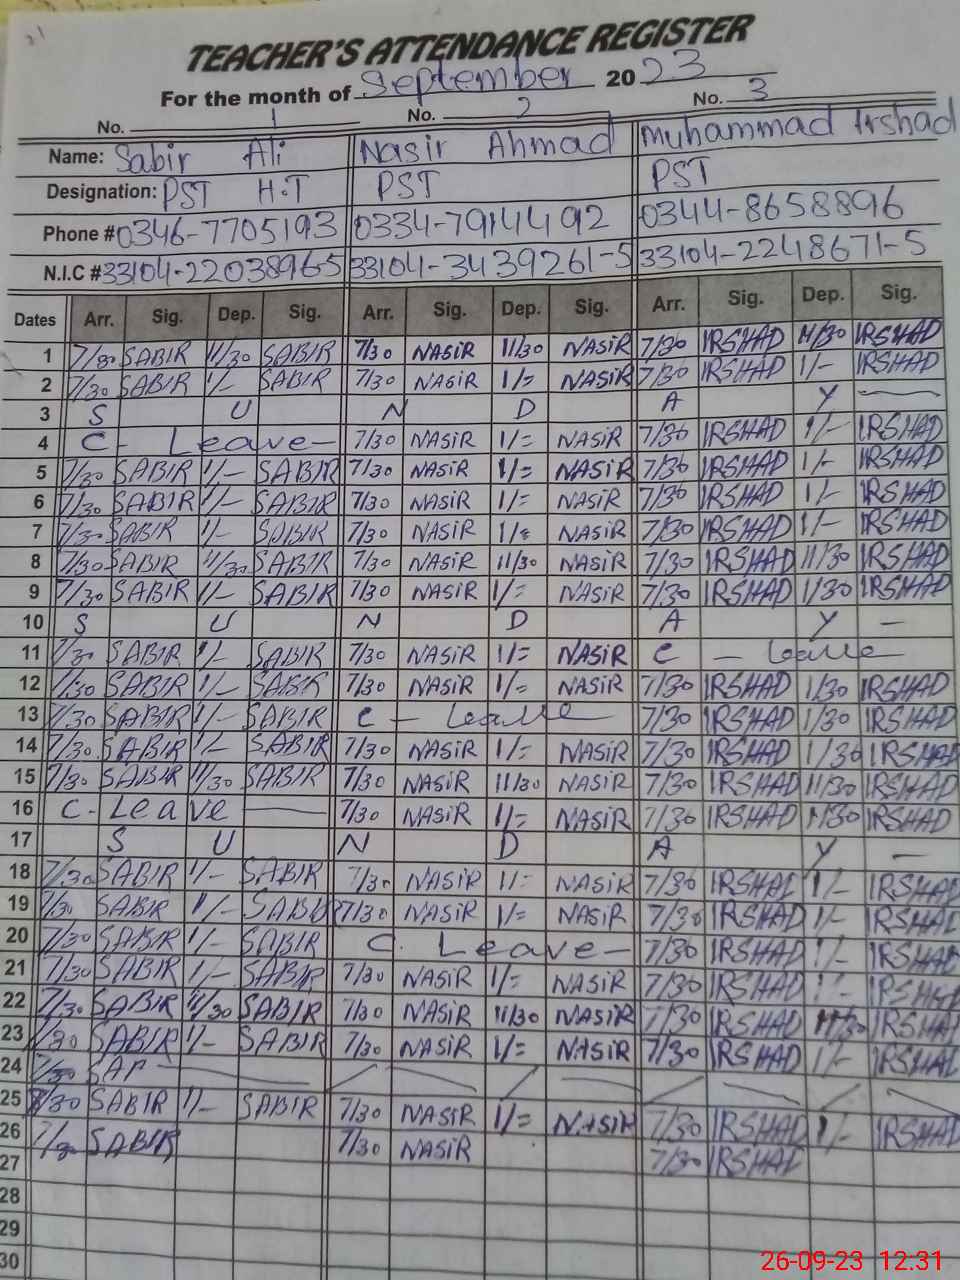 21
TEACHER'S ATTENDANCE REGISTER
For the month of September 2023
No. 1 No. 2 No. 3
Name: Sabir Ali Nasir Ahmad Muhammad Irshad
Designation: PST H.T PST PST
Phone # 0346-7705193 0334-7914492 0344-8658896
N.I.C # 33104-22038965 33104-3439261-5 33104-2248671-5
Dates Arr. Sig. Dep. Sig. Arr. Sig. Dep. Sig. Arr. Sig. Dep. Sig.
1 7/30 SABIR 11/30 SABIR 7/30 NASIR 11/30 NASIR 7/30 IRSHAD 11/30 IRSHAD
2 7/30 SABIR 1/- SABIR 7/30 NASIR 1/= NASIR 7/30 IRSHAD 1/- IRSHAD
3 S U N D A Y —
4 C- Leave- 7/30 NASIR 1/= NASIR 7/30 IRSHAD 1/- IRSHAD
5 7/30 SABIR 1/- SABIR 7/30 NASIR 1/= NASIR 7/30 IRSHAD 1/- IRSHAD
6 7/30 SABIR 1/- SABIR 7/30 NASIR 1/= NASIR 7/30 IRSHAD 1/- IRSHAD
7 7/30 SABIR 1/- SABIR 7/30 NASIR 1/= NASIR 7/30 IRSHAD 1/- IRSHAD
8 7/30 SABIR 11/30 SABIR 7/30 NASIR 11/30 NASIR 7/30 IRSHAD 11/30 IRSHAD
9 7/30 SABIR 1/- SABIR 7/30 NASIR 1/= NASIR 7/30 IRSHAD 1/30 IRSHAD
10 S U N D A Y —
11 7/30 SABIR 1/- SABIR 7/30 NASIR 1/= NASIR C - Leave
12 7/30 SABIR 1/- SABIR 7/30 NASIR 1/= NASIR 7/30 IRSHAD 1/30 IRSHAD
13 7/30 SABIR 1/- SABIR C - Leave 7/30 IRSHAD 1/30 IRSHAD
14 7/30 SABIR 1/- SABIR 7/30 NASIR 1/= NASIR 7/30 IRSHAD 1/30 IRSHAD
15 7/30 SABIR 11/30 SABIR 7/30 NASIR 11/30 NASIR 7/30 IRSHAD 11/30 IRSHAD
16 C- Leave — 7/30 NASIR 1/= NASIR 7/30 IRSHAD 1/30 IRSHAD
17 S U N D A Y —
18 7/30 SABIR 1/- SABIR 7/30 NASIR 1/= NASIR 7/30 IRSHAD 1/- IRSHAD
19 7/30 SABIR 1/- SABIR 7/30 NASIR 1/= NASIR 7/30 IRSHAD 1/- IRSHAD
20 7/30 SABIR 1/- SABIR C. Leave- 7/30 IRSHAD 1/- IRSHAD
21 7/30 SABIR 1/- SABIR 7/30 NASIR 1/= NASIR 7/30 IRSHAD 1/- IRSHAD
22 7/30 SABIR 11/30 SABIR 7/30 NASIR 11/30 NASIR 7/30 IRSHAD 11/30 IRSHAD
23 7/30 SABIR 1/- SABIR 7/30 NASIR 1/= NASIR 7/30 IRSHAD 1/- IRSHAD
24 7/30
25 7/30 SABIR 1/- SABIR 7/30 NASIR 1/= NASIR 7/30 IRSHAD 1/- IRSHAD
26 7/30 SABIR 7/30 NASIR 7/30 IRSHAD
27
28
29
30
26-09-23 12:31